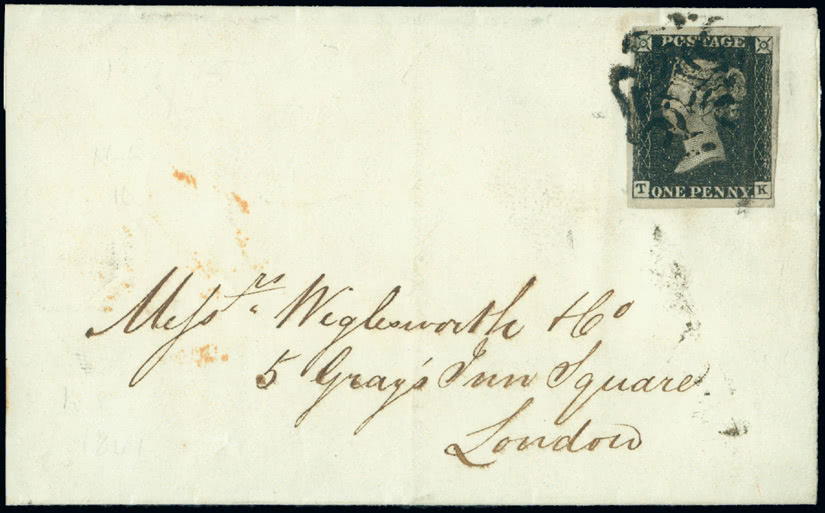 POSTAGE
T ONE PENNY. K
Mess^rs. Wiglesworth & Co
5 Gray's Inn Square
London